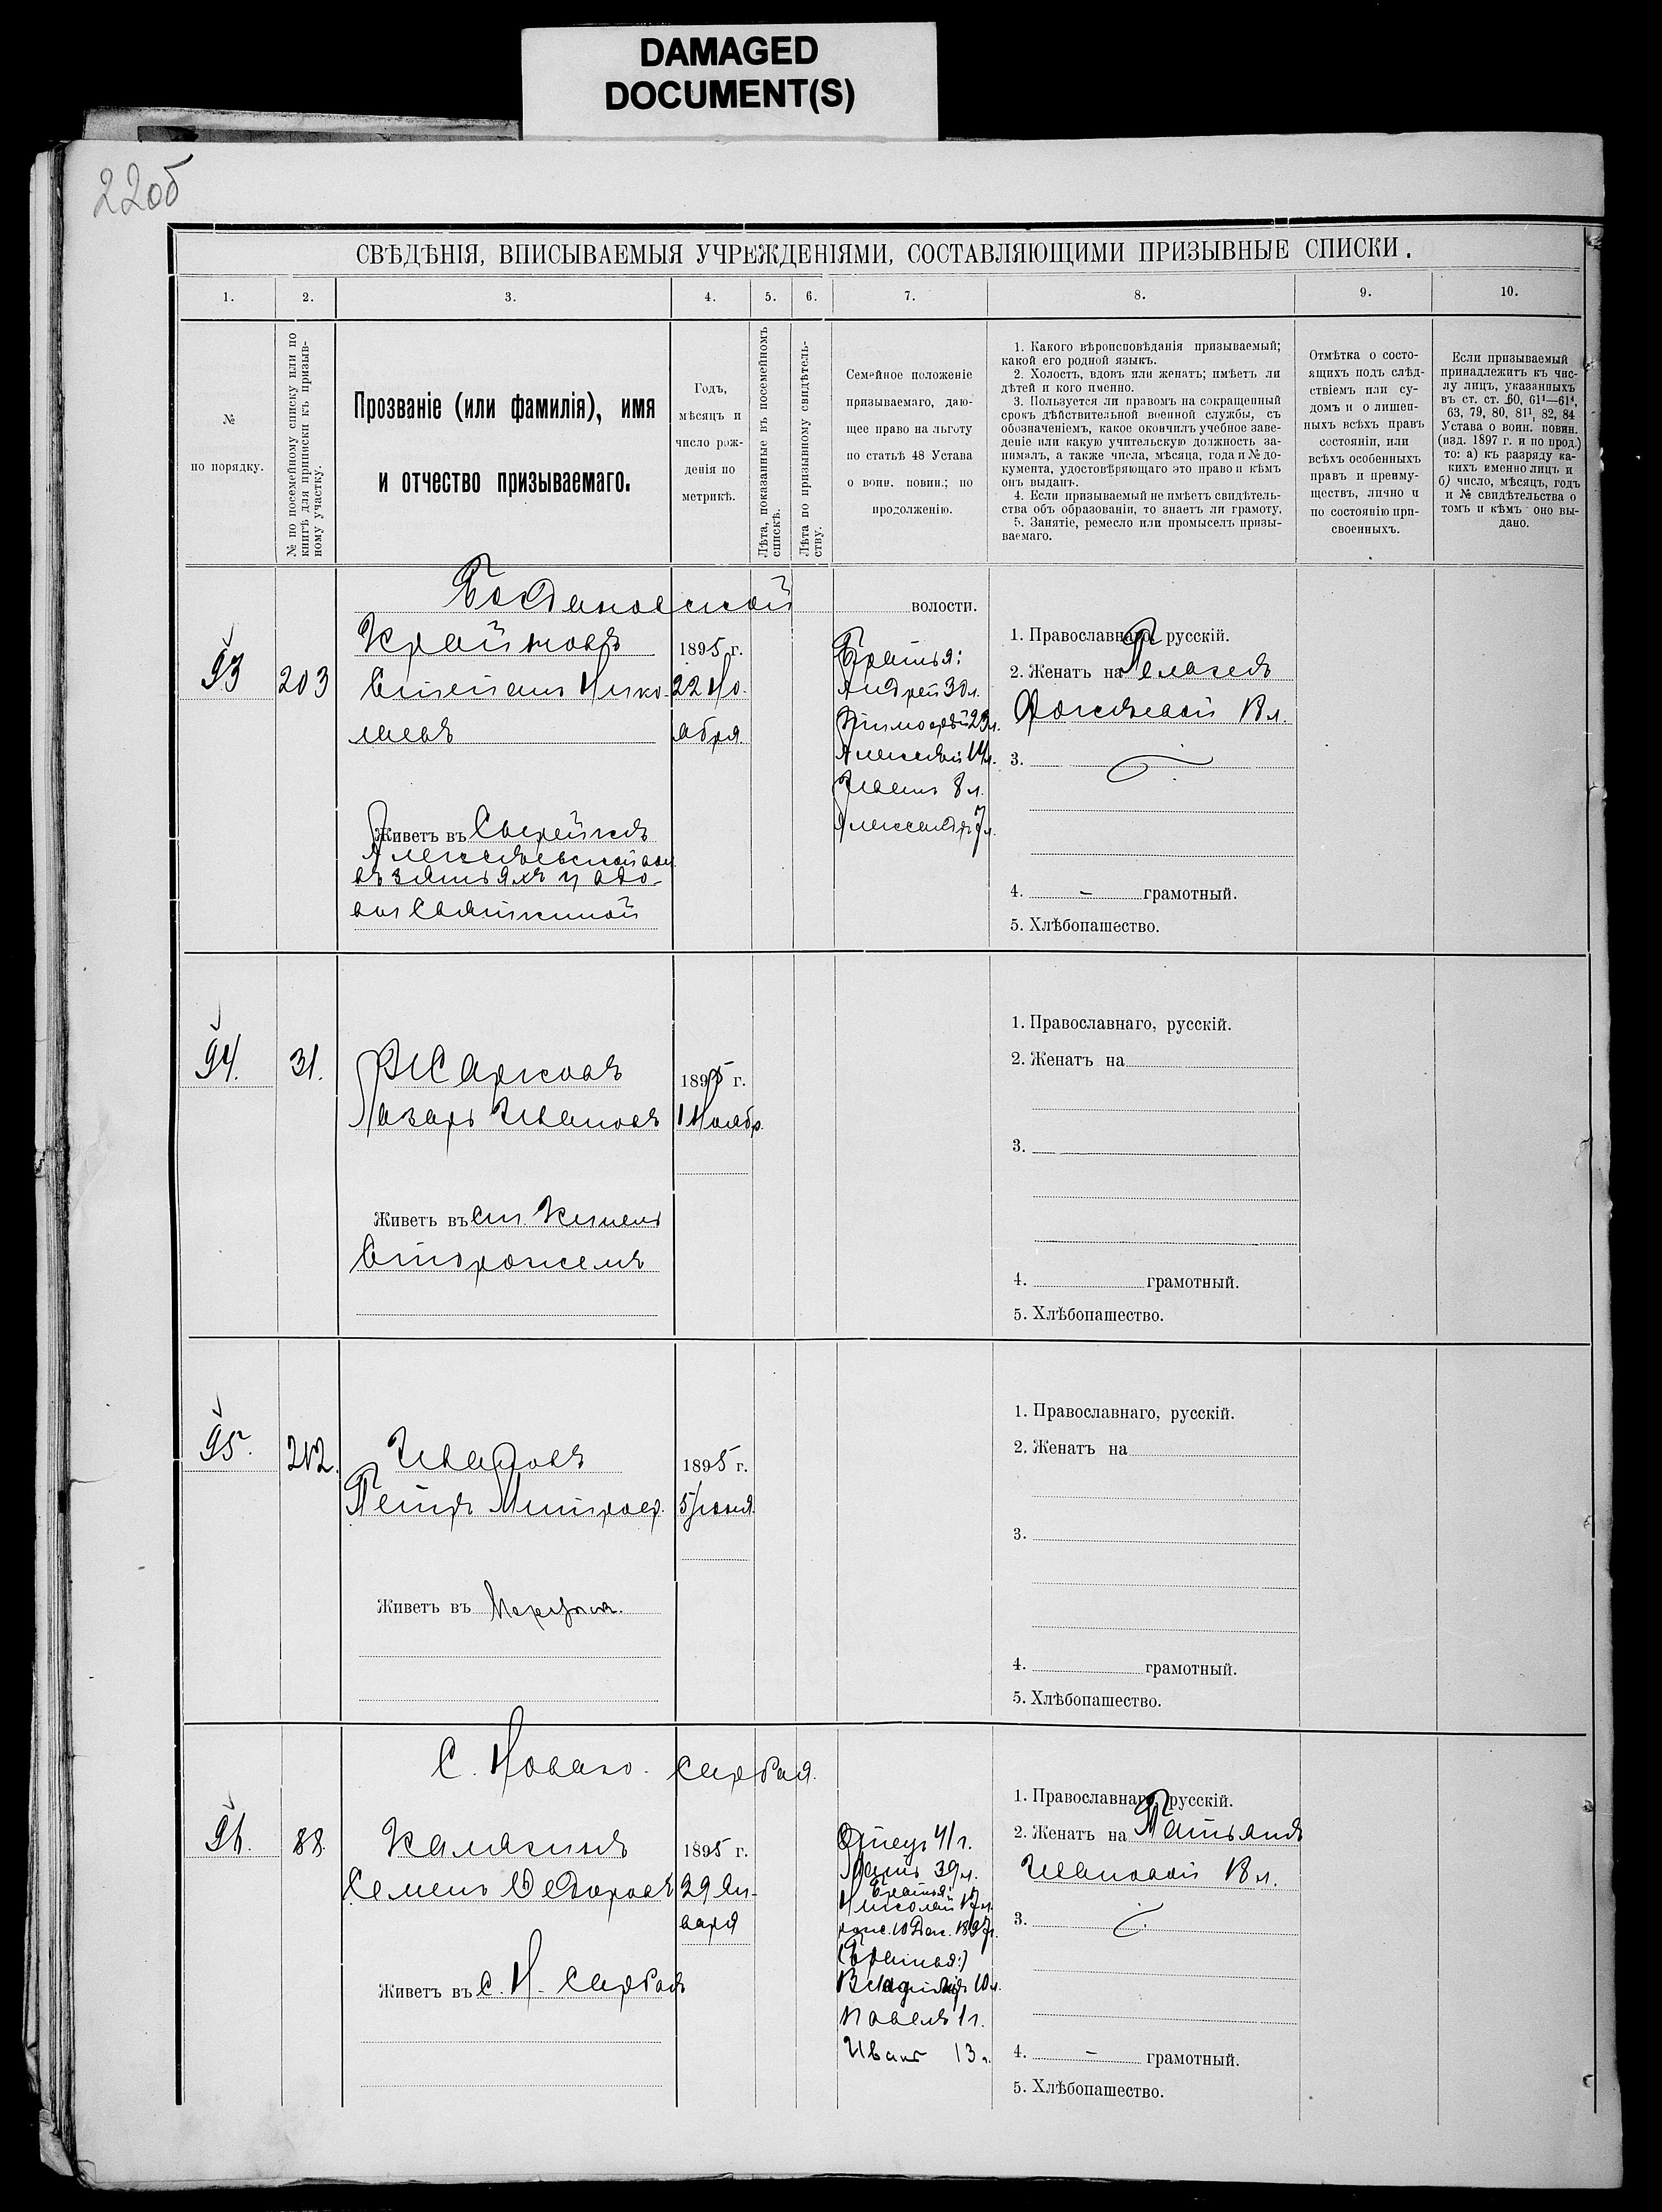 DAMAGED
DOCUMENT(S)
22об
СВѢДѢНІЯ, ВПИСЫВАЕМЫЯ УЧРЕЖДЕНІЯМИ, СОСТАВЛЯЮЩИМИ ПРИЗЫВНЫЕ СПИСКИ.
1. 2. 3. 4. 5. 6. 7. 8. 9. 10.
№
по порядку.
№ по посемейному списку или по
книгѣ для приписки къ призыв-
ному участку.
Прозваніе (или фамилія), имя
и отчество призываемаго.
Годъ,
мѣсяцъ и
число рож-
денія по
метрикѣ.
Лѣта, показанные въ посемейномъ
спискѣ.
Лѣта по призывному свидѣтель-
ству.
Семейное положеніе
призываемаго, даю-
щее право на льготу
по статьѣ 48 Устава
о воин. повин.; по
продолженію.
1. Какого вѣроисповѣданія призываемый;
какой его родной языкъ.
2. Холостъ, вдовъ или женатъ; имѣетъ ли
дѣтей и кого именно.
3. Пользуется ли правомъ на сокращенный
срокъ дѣйствительной военной службы, съ
обозначеніемъ, какое окончилъ учебное заве-
деніе или какую учительскую должность за-
нималъ, а также числа, мѣсяца, года и № до-
кумента, удостовѣряющаго это право и кѣмъ
онъ выданъ.
4. Если призываемый не имѣетъ свидѣтель-
ства объ образованіи, то знаетъ ли грамоту.
5. Занятіе, ремесло или промыселъ призы-
ваемаго.
Отмѣтка о состо-
ящихъ подъ слѣд-
ствіемъ или су-
домъ и о лишен-
ныхъ всѣхъ правъ
состоянія, или
всѣхъ особенныхъ
правъ и преиму-
ществъ, лично и
по состоянію при-
своенныхъ.
Если призываемый
принадлежитъ къ чис-
лу лицъ, указанныхъ
въ ст. ст. 60, 61¹—61⁴,
63, 79, 80, 81¹, 82, 84
Устава о воин. повин.
(изд. 1897 г. и по прод.)
то: а) къ разряду ка-
кихъ именно лицъ и
б) число, мѣсяцъ, годъ
и № свидѣтельства о
томъ и кѣмъ оно вы-
дано.
Богдановской волости.
93 203
Крайновъ
Степанъ Нико-
лаевъ
1895 г.
22 Но-
ября
Живетъ въ
Алексѣевской вол
въ зятьяхъ у вдо-
вы
Братья:
Андрей 30 л.
Тимофей 23 л.
Алексѣй 14 л.
Иванъ 8 л.
Александръ 7 л.
1. Православнаго, русскій.
2. Женатъ на Пелагеѣ
18 л.
3.
4. – грамотный.
5. Хлѣбопашество.
94. 31.
Жарковъ
Лазарь Ивановъ
1895 г.
1 Ноябр.
Живетъ въ ст. Кинель
Сторожемъ
1. Православнаго, русскій.
2. Женатъ на
3.
4. грамотный.
5. Хлѣбопашество.
95. 212.
Ивановъ
Петръ Митроф.
1895 г.
5 Іюня
Живетъ въ
1. Православнаго, русскій.
2. Женатъ на
3.
4. грамотный.
5. Хлѣбопашество.
С. Новаго Сарбая.
96. 88.
Калягинъ
Семенъ Ѳедоровъ
1895 г.
29 Ян-
варя
Живетъ въ с. Н. Сарбаѣ
Отецъ 41 г.
Мать 39 л.
Братья:
Николай 17 л.
рож. 10 Дек. 1897 г.
(Братья:)
Владиміръ 10 л.
Павелъ 1 г.
Иванъ 13 л.
1. Православнаго, русскій.
2. Женатъ на Татьянѣ
Ивановой 18 л.
3.
4. – грамотный.
5. Хлѣбопашество.